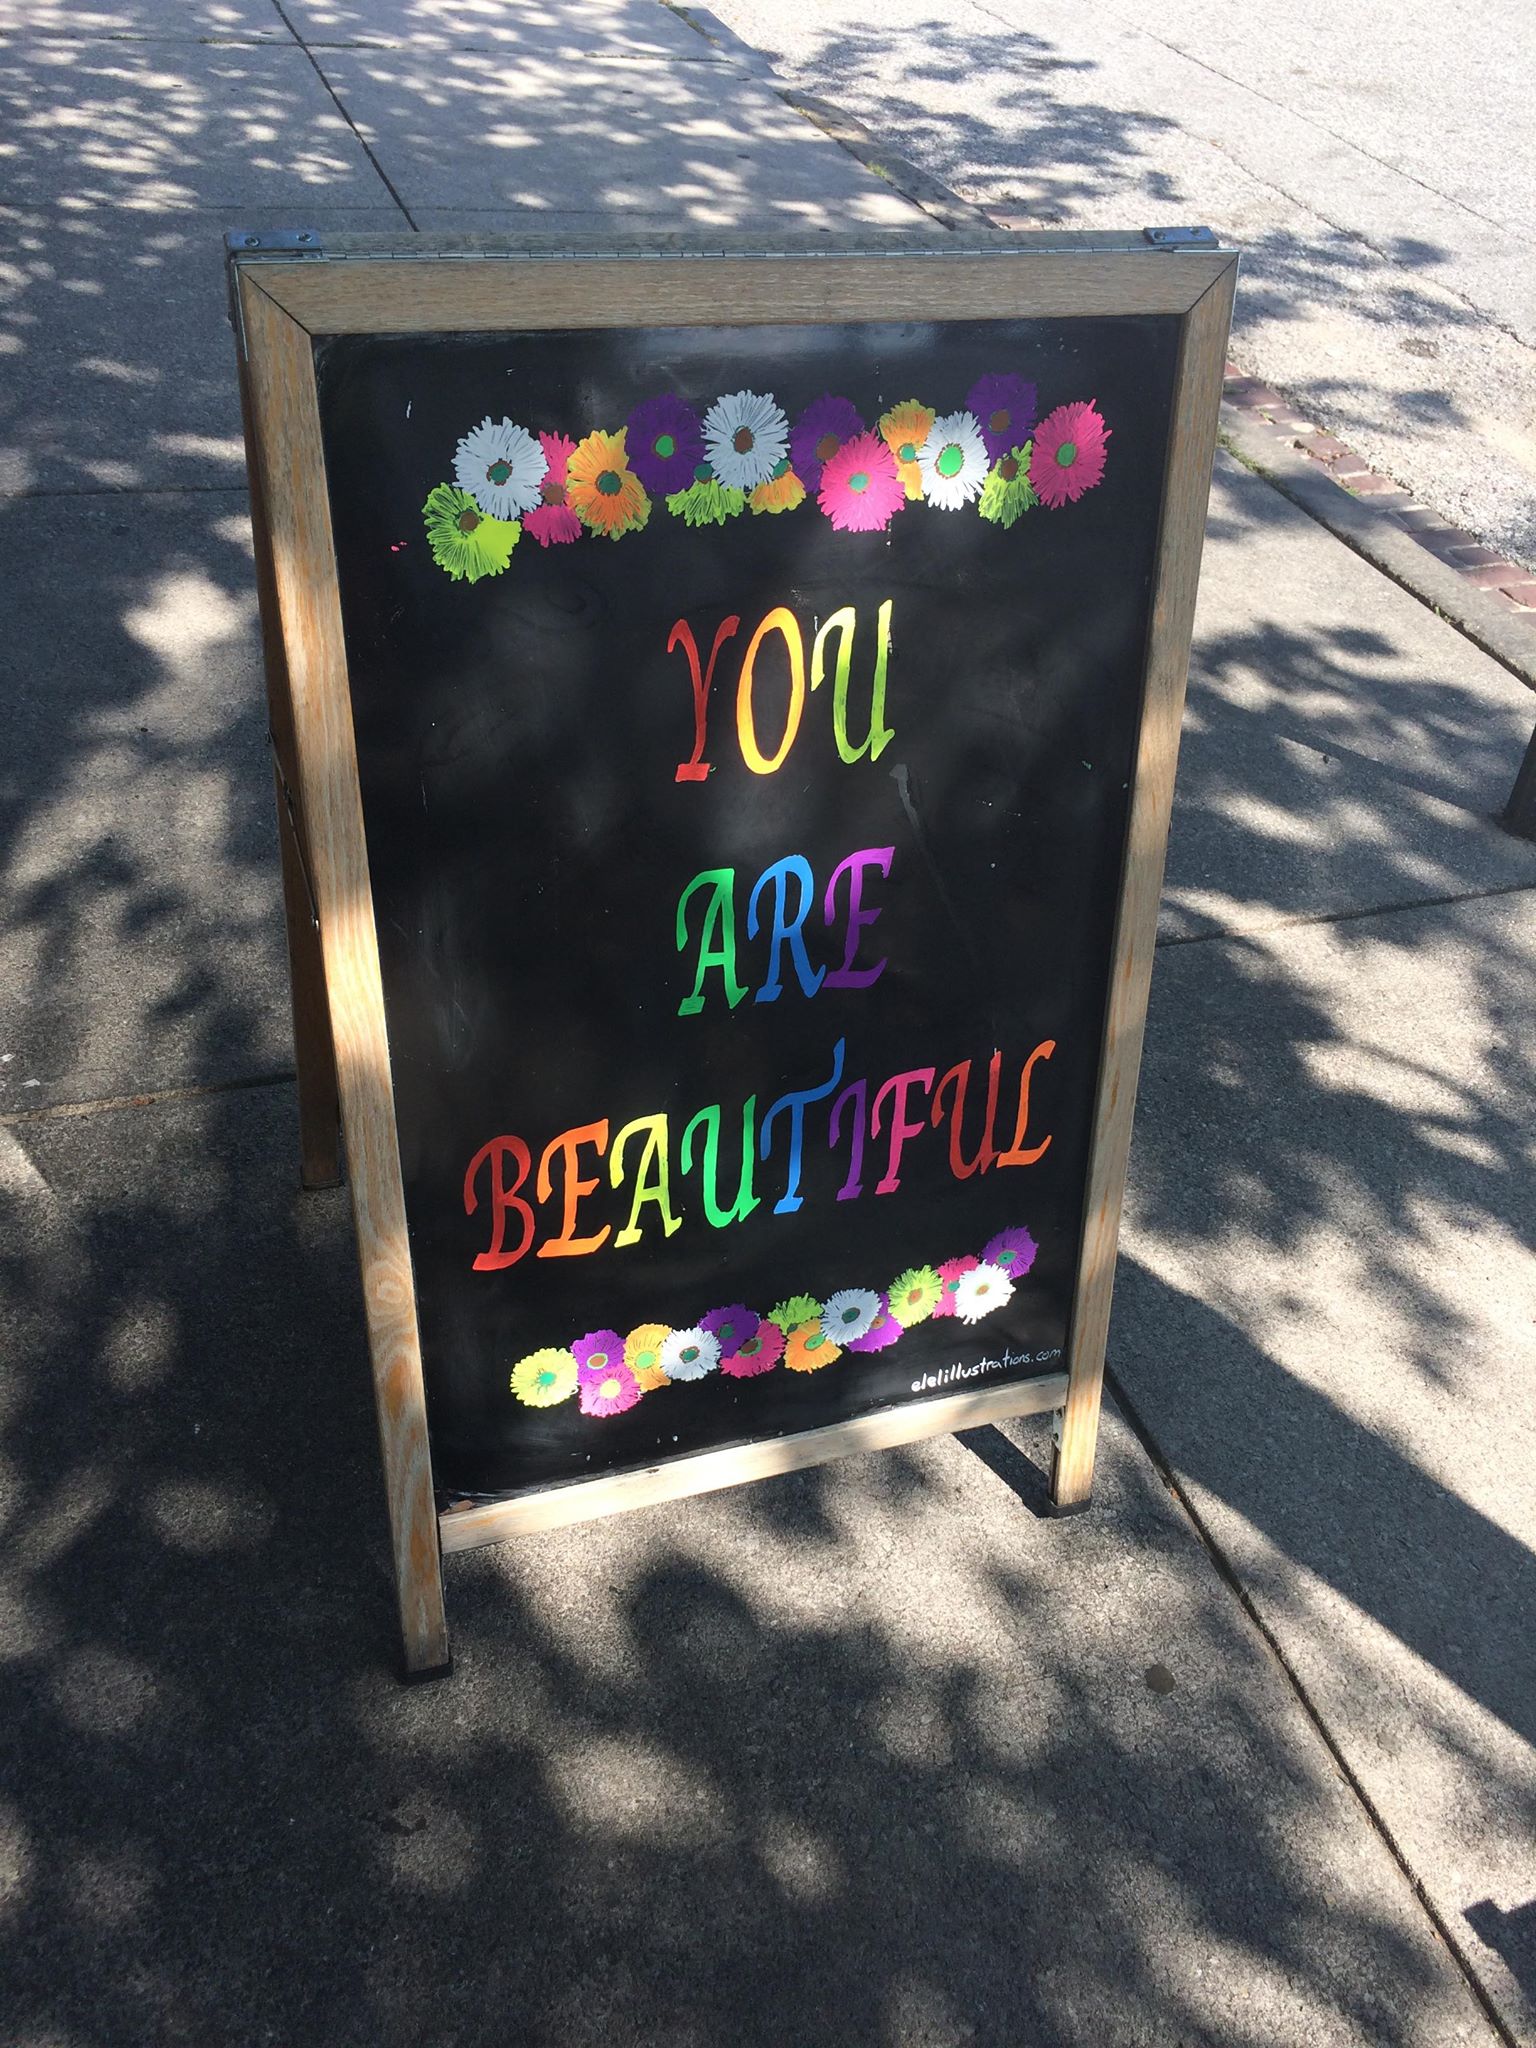 YOU
ARE
BEAUTIFUL
elelillustrations.com